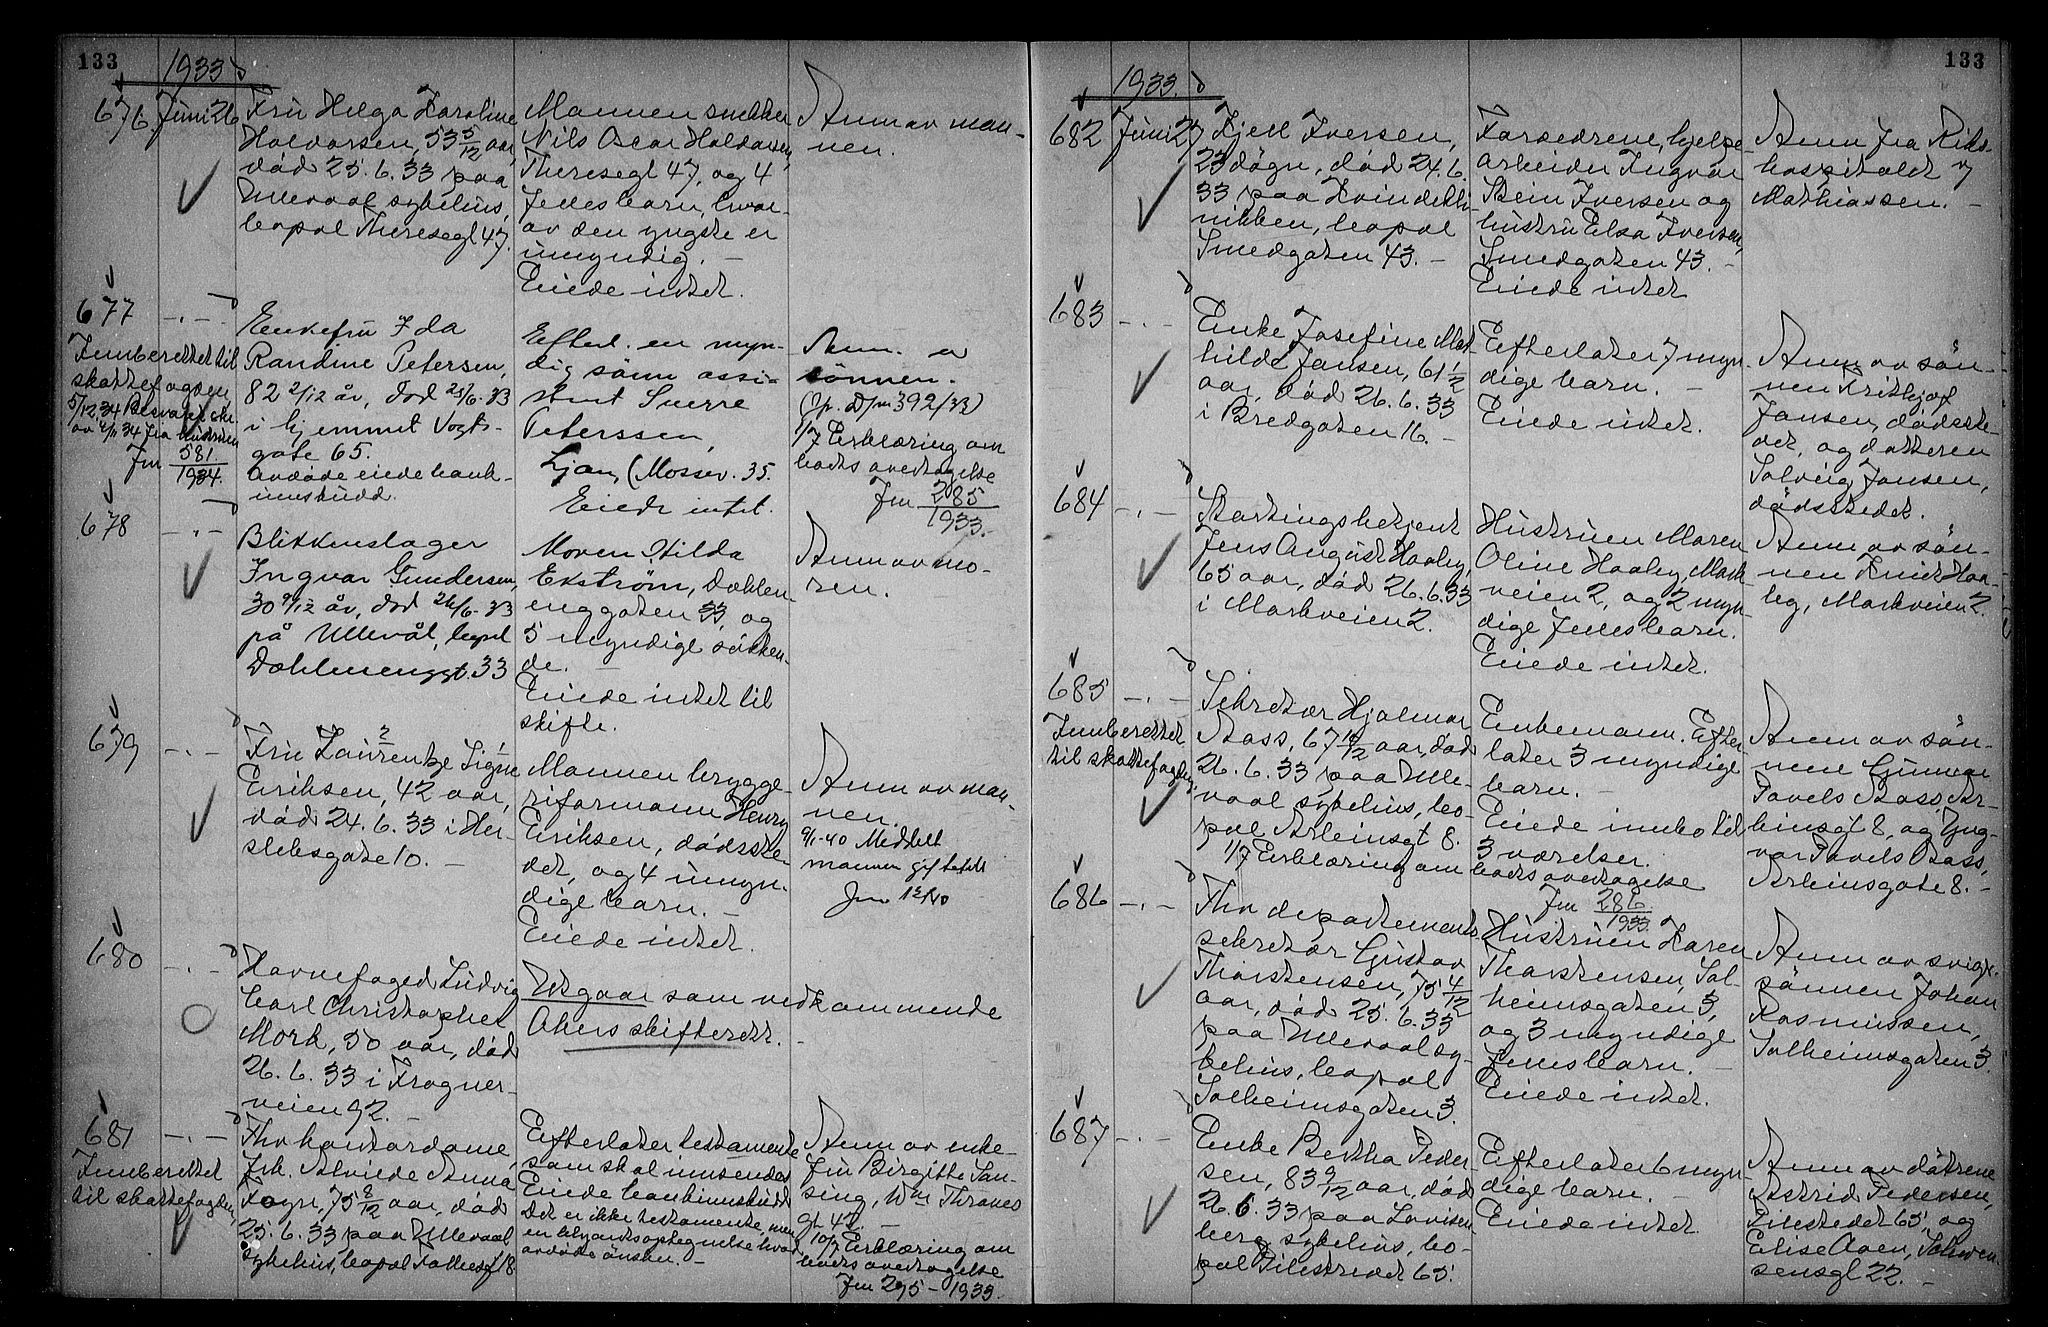 133
1933
676. Juni 26
Fru Helga Karoline
Halvorsen, 53 5/12 aar,
död 25.6.33 paa
Ullevaal sykehus,
bopæl Theresegt 47.
Mannen snekker
Nils Oscar Halvorsen,
Theresegt 47, og 4
fellesbarn, hvor-
av den yngste er
umyndig. -
Eiede intet.
Anm av man-
nen.
677 - . -
Innberettet til
skattefogden
5/12.34 Besvar. skr.
av 4/11 34 fra
Jnr 581/1934.
Enkefru Ida
Randine Petersen,
82 2/12 år, död 25/6-33
i hjemmet Vogts-
gate 65.
Avdöde eiede bank-
innskudd.
Efterl. en myn-
dig sönn assi-
stent Sverre
Peterssen,
Ljan, (Mossev. 35.
Eiede intet.
Anm. av
sönnen.
392/33)
1/7 Erklæring om
boets overtagelse
Jnr 285/1933.
678 - . -
Blikkenslager
Ingvar Gundersen,
30 9/12 år, död 26/6-33
på Ullevål, bopel
Dæhlenenggt. 33
Moren Hilda
Ekström, Dæhlen-
enggaten 33, og
5 myndige sösken-
de. -
Eiede intet til
skifte.
Anm av mo-
ren.
679 - . -
Fru Laurentze Signe
Eriksen, 42 aar,
död 24.6.33 i Her-
slebsgate 10. -
Mannen brygge-
riformann Henry
Eriksen, dödsste-
det, og 4 umyn-
dige barn. -
Eiede intet.
Anm av man-
nen.
9/1-40 Meddelt
mannen
680 - . -
Havnefoged Ludvig
Carl Christopher
Mork, 50 aar, död
26.6.33 i Frogner-
veien 92. -
Utgaar som vedkommende
Akers skifterett. -
681 - . -
Innberettet
til skattefogden,
Fhv kontordame,
frk. Alvilde Anna
Fogn, 75 8/12 aar, död
25.6.33 paa Ullevaal
sykehus, bopæl 18
Efterlater testamente
som skal innsendes
Eiede bankinnskudd
Det er ikke testamente, men
en
avdödes önsker. -
Anm av enke-
fru Birgitte Lan-
sing, Wm Thranes
gt 47. -
10/7 Erklæring om
boets overtagelse
Jnr 295 - 1933.
133
1933.
682 Juni 27
Kjell Iversen,
23 dögn, död 24.6.
33 paa Kvindekli-
nikken, bopæl
Smedgaten 43. -
Forældrene, hjelpe-
arbeider Ingvar
Stein Iversen og
hustru Elsa Iversen,
Smedgaten 43. -
Eiede intet
Anm fra Riks-
hospitalet v
Mathiassen. -
683 - . -
Enke Josefine Mat-
hilde Jansen, 61 1/2
aar, död 26.6.33
i Bredgaten 16. -
Efterlater 7 myn-
dige barn. -
Eiede intet.
Anm av sön-
nen Frithjof
Jansen, dödsste-
det, og datteren
Solveig Jansen,
dödsstedet.
684 - . -
Stortingsbetjent
Jens August Haaby,
65 aar, död 26.6.33
i Markveien 2.
Hustruen Maren
Oline Haaby, Mark-
veien 2, og 2 myn-
dige fellesbarn.
Eiede intet.
Anm av sön-
nen Knut Haa-
by, Markveien 2.
685 - . -
Innberettet
til skattefogden,
Sekretær Hjalmar
Aass, 67 10/12 aar, död
26.6.33 paa Ulle-
vaal sykehus, bo-
pæl Arbeinsgt 8.
1/7 Erklæring om boets overtagelse
Jnr 286/1933.
Enkemann. Efter-
later 3 myndige
barn. -
Eiede innbo til
3 værelser.
Anm av sön-
nene Gunnar
Pavels Aass, Ar-
binsgt 8, og Yng-
var Pavels Aass,
Arbinsgate 8. -
686 - . -
Fhv departements-
sekretær Gustav
Thorstensen, 75 4/12
aar, död 25.6.33
paa Ullevaal sy-
kehus, bopæl
Solheimsgaten 3.
Hustruen Karen
Thorstensen, Sol-
heimsgaten 3,
og 3 myndige
fellesbarn. -
Eiede intet.
Anm av sviger-
sönnen Johan
Rasmussen,
Solheimsgaten 3.
687 - . -
Enke Bertha Peder-
sen, 83 9/12 aar, död
26.6.33 paa Lovisen-
berg sykehus, bo-
pæl Pilestredet 65.
Efterlater 6 myn-
dige barn. -
Eiede intet.
Anm av döttrene
Astrid Pedersen,
Pilestredet 65, og
Elise Aaen,
sensgt 22. -